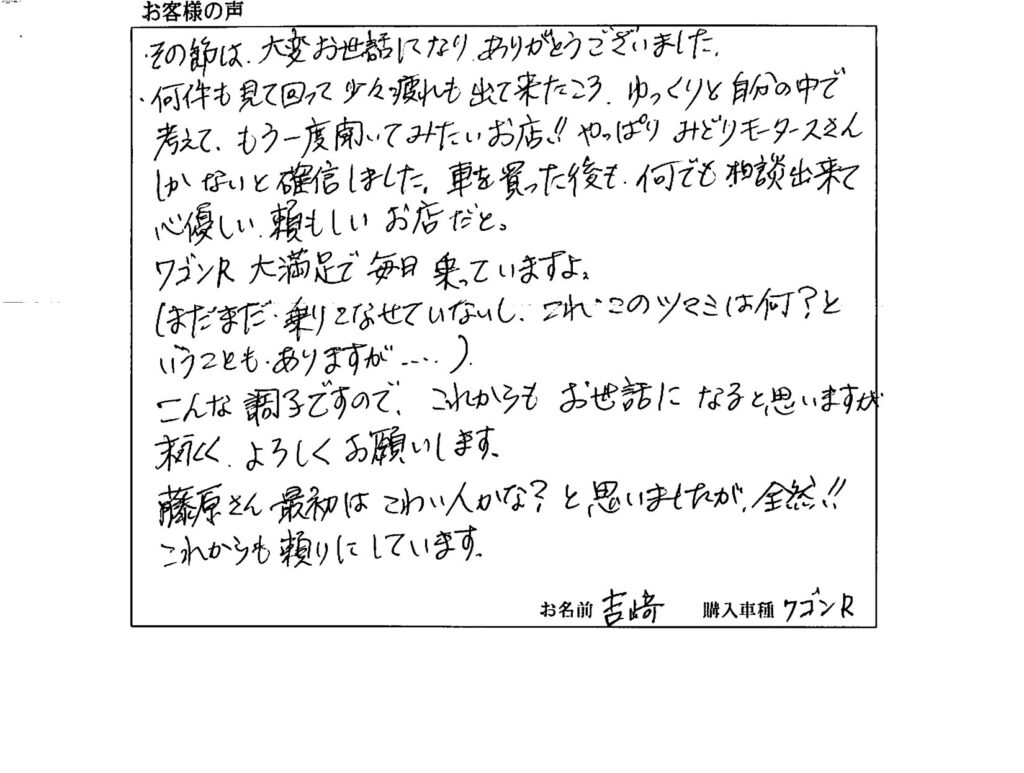 お客様の声
・その節は、大変お世話になりありがとうございました。
・何件も見て回って少々疲れも出て来たころ、ゆっくりと自分の中で
考えて、もう一度聞いてみたいお店!!やっぱりみどりモータースさん
しかないと確信しました。車を買った後も、何でも相談出来て
心優しい、頼もしいお店だと。
ワゴンR 大満足で毎日乗っていますよ。
(まだまだ、乗りこなせていないし、これ・このツマミは何?と
いうことも・ありますが……)
こんな調子ですので、これからもお世話になると、思いますが
末永く、よろしくお願いします。
藤原さん最初はこわい人かな?と、思いましたが、全然!!
これからも頼りにしています。
お名前 吉﨑 購入車種 ワゴンR